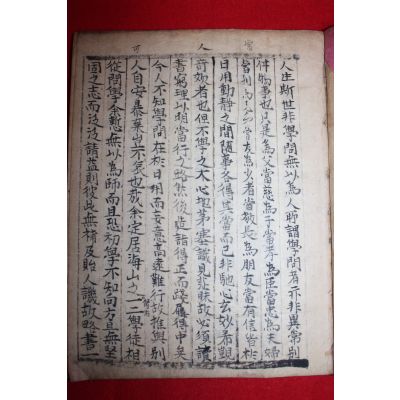 人生斯世非學問無以為人所謂學問者亦非異常別
件物事也只是為父當慈為子當孝為臣當忠為夫婦
當別為兄弟當友為少者當敬長為朋友當有信皆於
日用動靜之間隨事各得其當而已非馳心玄妙希覬
奇妙者也但不學之人心地茅塞識見茫昧故必須讀
書窮理以明當行之路然後造詣得正而踐履得中矣
今人不知學問在於日用而妄意高遠難行故推與別
人自安暴棄豈不哀也哉余定居海山之陽有一二學徒相
從問學余慙無以為師而且恐初學不知向方且無堅
固之志而泛泛請益則彼此無補反貽人譏故略書一
人
可